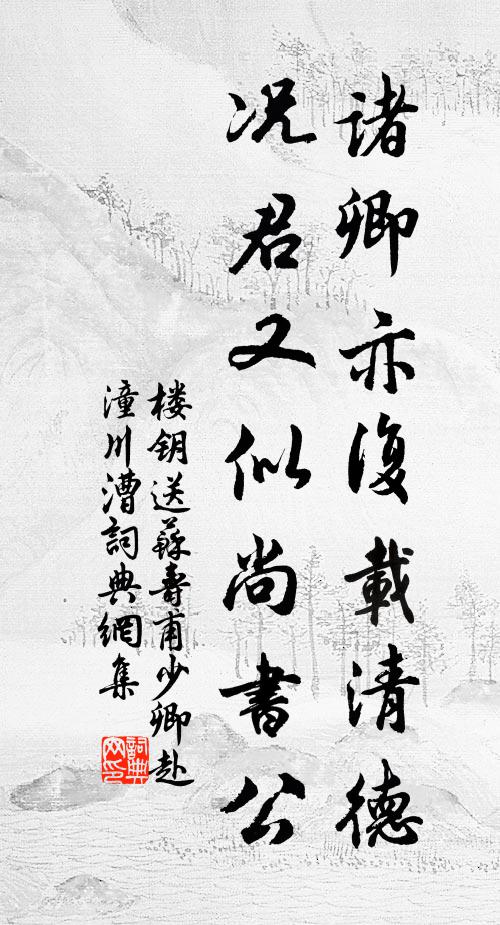 诸卿亦復載清德
况君又似尚書公
楼钥送蘇壽甫少卿赴
潼川漕詞典網集
詞典
网印